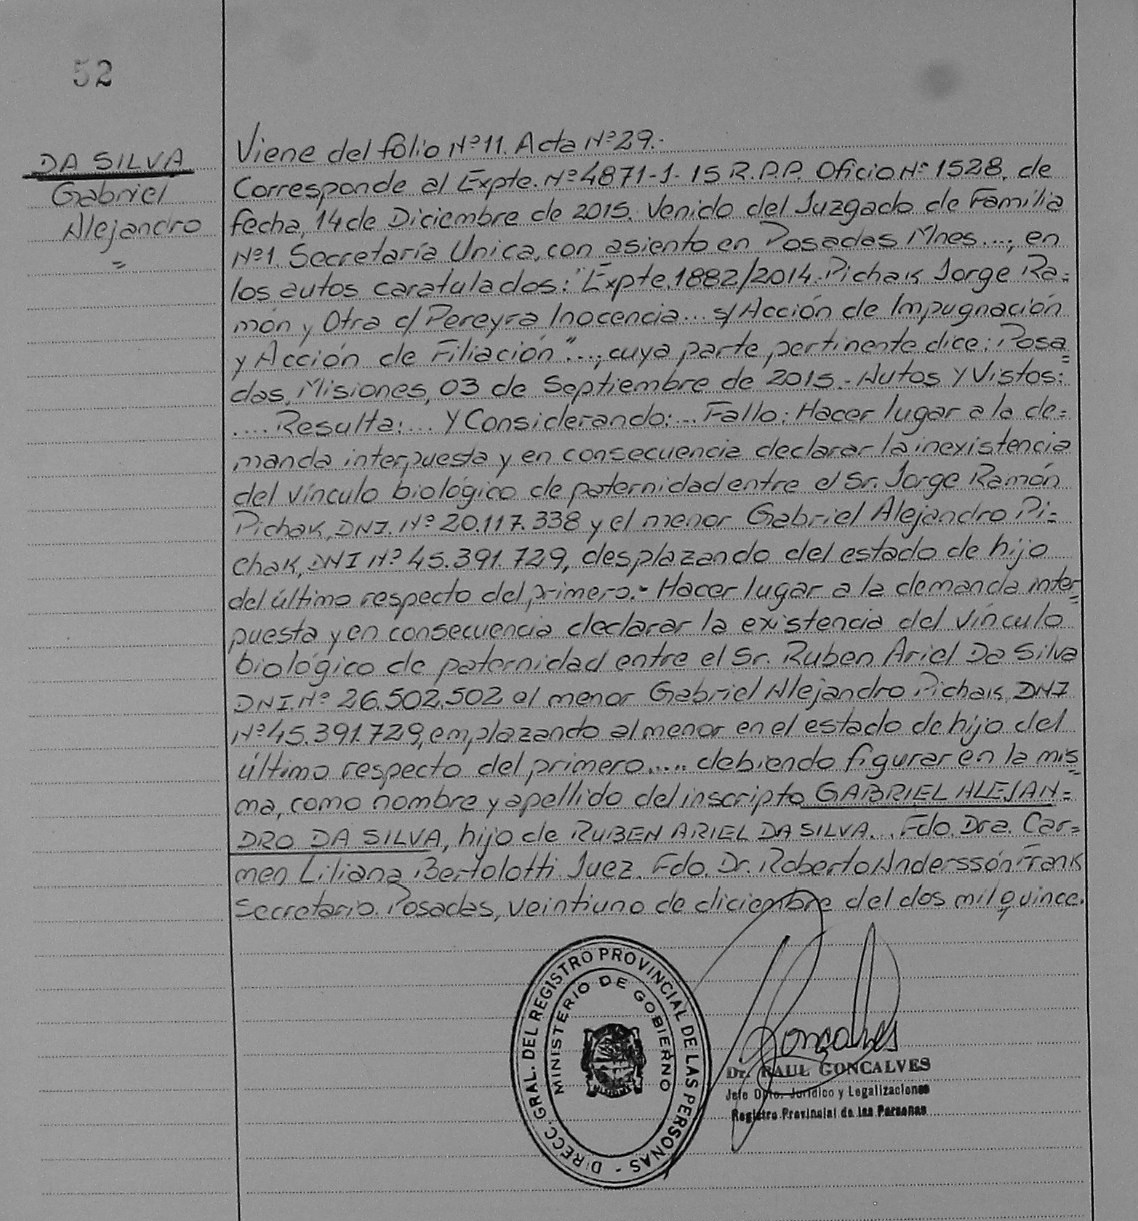 52
DA SILVA
Gabriel
Alejandro
=
Viene del folio Nº 11. Acta Nº 29.-
Corresponde al Expte. Nº 4871-1-15 R.P.P. Oficio Nº 1528, de
fecha, 14 de Diciembre de 2015. Venido del Juzgado de Familia
Nº1. Secretaría Unica, con asiento en Posadas Mnes...., en
los autos caratulados: "Expte. 1882/2014. Pichak Jorge Ra=
món y Otra c/ Pereyra Inocencia... s/ Acción de Impugnación
y Acción de Filiación"..., cuya parte pertinente dice: Posa=
das, Misiones, 03 de Septiembre de 2015.- Autos y Vistos:
.... Resulta:... Y Considerando:... Fallo: Hacer lugar a la de=
manda interpuesta y en consecuencia declarar la inexistencia
del vínculo biológico de paternidad entre el Sr. Jorge Ramón
Pichak, DNI. Nº 20.117.338 y el menor Gabriel Alejandro Pi=
chak, DNI Nº 45.391.729, desplazando del estado de hijo
del último respecto del primero.- Hacer lugar a la demanda inter=
puesta y en consecuencia declarar la existencia del vínculo
biológico de paternidad entre el Sr. Ruben Ariel Da Silva
DNI Nº 26.502.502 al menor Gabriel Alejandro Pichak, DNI
Nº 45.391.729, emplazando al menor en el estado de hijo del
último respecto del primero..... debiendo figurar en la mis=
ma, como nombre y apellido del inscripto GABRIEL ALEJAN=
DRO DA SILVA, hijo de RUBEN ARIEL DA SILVA... Fdo. Dra. Car=
men Liliana Bertolotti Juez. Fdo. Dr. Roberto Anderssón Frank
Secretario. Posadas, veintiuno de diciembre del dos mil quince.
DIRECC. GRAL. DEL REGISTRO PROVINCIAL DE LAS PERSONAS -
MINISTERIO DE GOBIERNO
Goncalves
Dr. RAUL GONCALVES
Jefe Dpto. Jurídico y Legalizaciones
Registro Provincial de las Personas